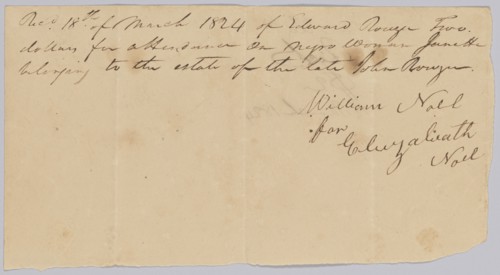 Rec.d 18th of March 1824 of Edward Rouzee Two
dollars for attendance on Negro Woman Jenette
belonging to the estate of the late John Rouzee.
William Noel
for
Elizabeath
Noel